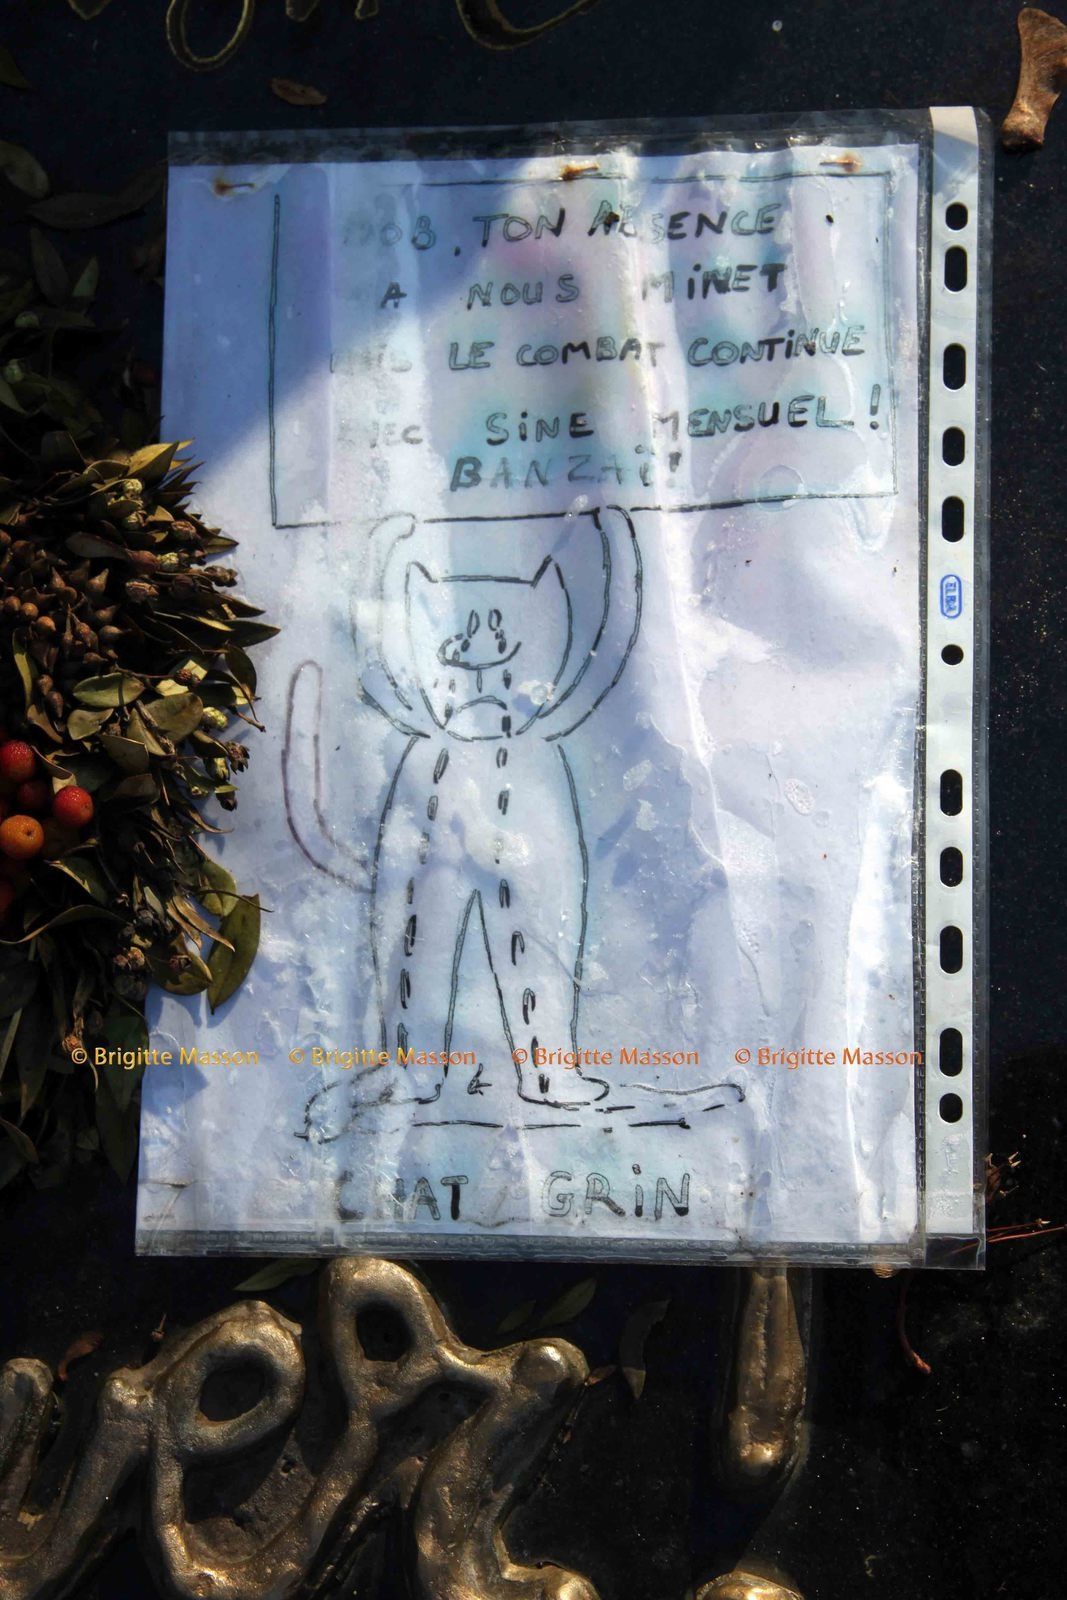 BOB, TON ABSENCE
A NOUS MINET
LE COMBAT CONTINUE
AVEC SINE MENSUEL!
BANZAÏ!
ELBA
© Brigitte Masson © Brigitte Masson © Brigitte Masson © Brigitte Masson
CHAT GRIN